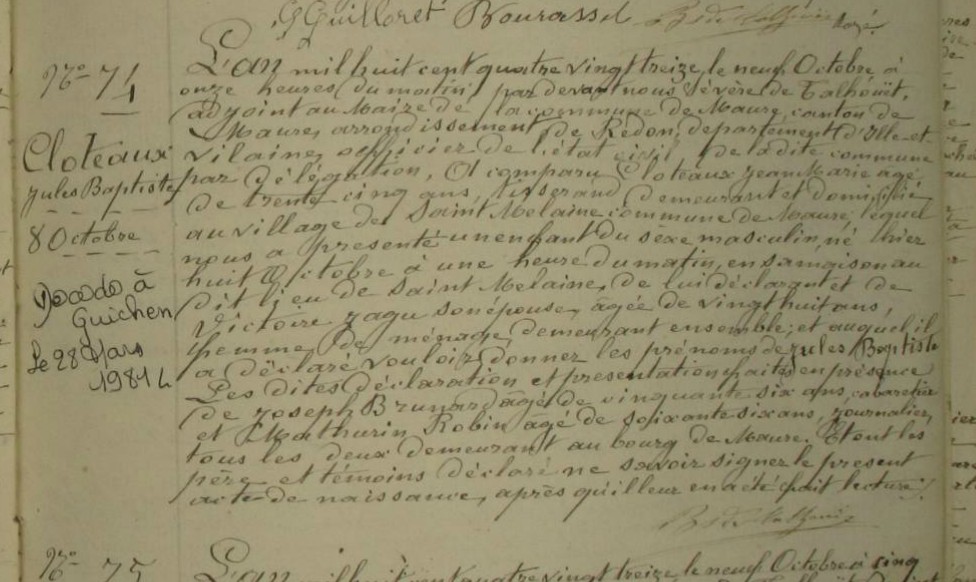 G Guilloret Bourassel
No 74
Cloteaux
Jules Baptiste
8 Octobre
Décédé à
Guichen
le 28 Mars
1981
L'an mil huit cent quatre vingt treize, le neuf Octobre, à
onze heures du matin, par devant nous Sévère de Talhouët,
adjoint au Maire de la commune de Maure, canton de
Maure, arrondissement de Redon, département d'Ille-et-
Vilaine, officier de l'état civil de la dite commune
par délégation, A comparu Cloteaux Jean Marie âgé
de trente cinq ans, tisserand, demeurant et domicilié
au village de Saint Melaine commune de Maure, lequel
nous a présenté un enfant du sexe masculin, né hier
huit Octobre à une heure du matin, en sa maison au
dit lieu de Saint Melaine, de lui déclarant et de
Victoire Jagu son épouse, âgée de vingt huit ans,
femme de ménage, demeurant ensemble; et auquel il
a déclaré vouloir donner les prénoms de Jules Baptiste
Les dites déclaration et présentation faites en présence
de Joseph Brunard âgé de cinquante six ans, cabaretier
et Mathurin Robin âgé de soixante six ans, journalier,
tous les deux demeurant au bourg de Maure. Et ont les
père et témoins déclaré ne savoir signer le présent
acte de naissance, après qu'il leur en a été fait lecture.
No 75
L'an mil huit cent quatre vingt treize, le neuf Octobre à cinq